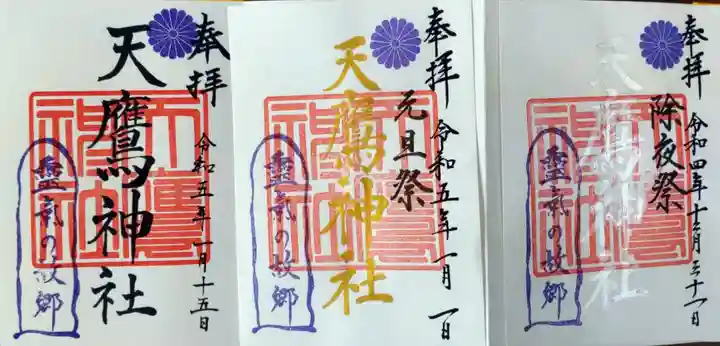 奉拝
天鷹神社
令和五年一月十五日
霊氣の故郷
奉拝
元旦祭
天鷹神社
令和五年一月一日
霊氣の故郷
奉拝
除夜祭
天鷹神社
令和四年十二月三十一日
霊氣の故郷